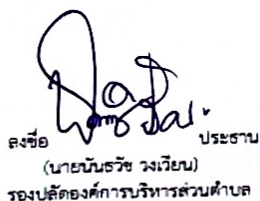 ลงชื่อ ประธาน
(นายนันธวัช วงเวียน)
รองปลัดองค์การบริหารส่วนตำบล